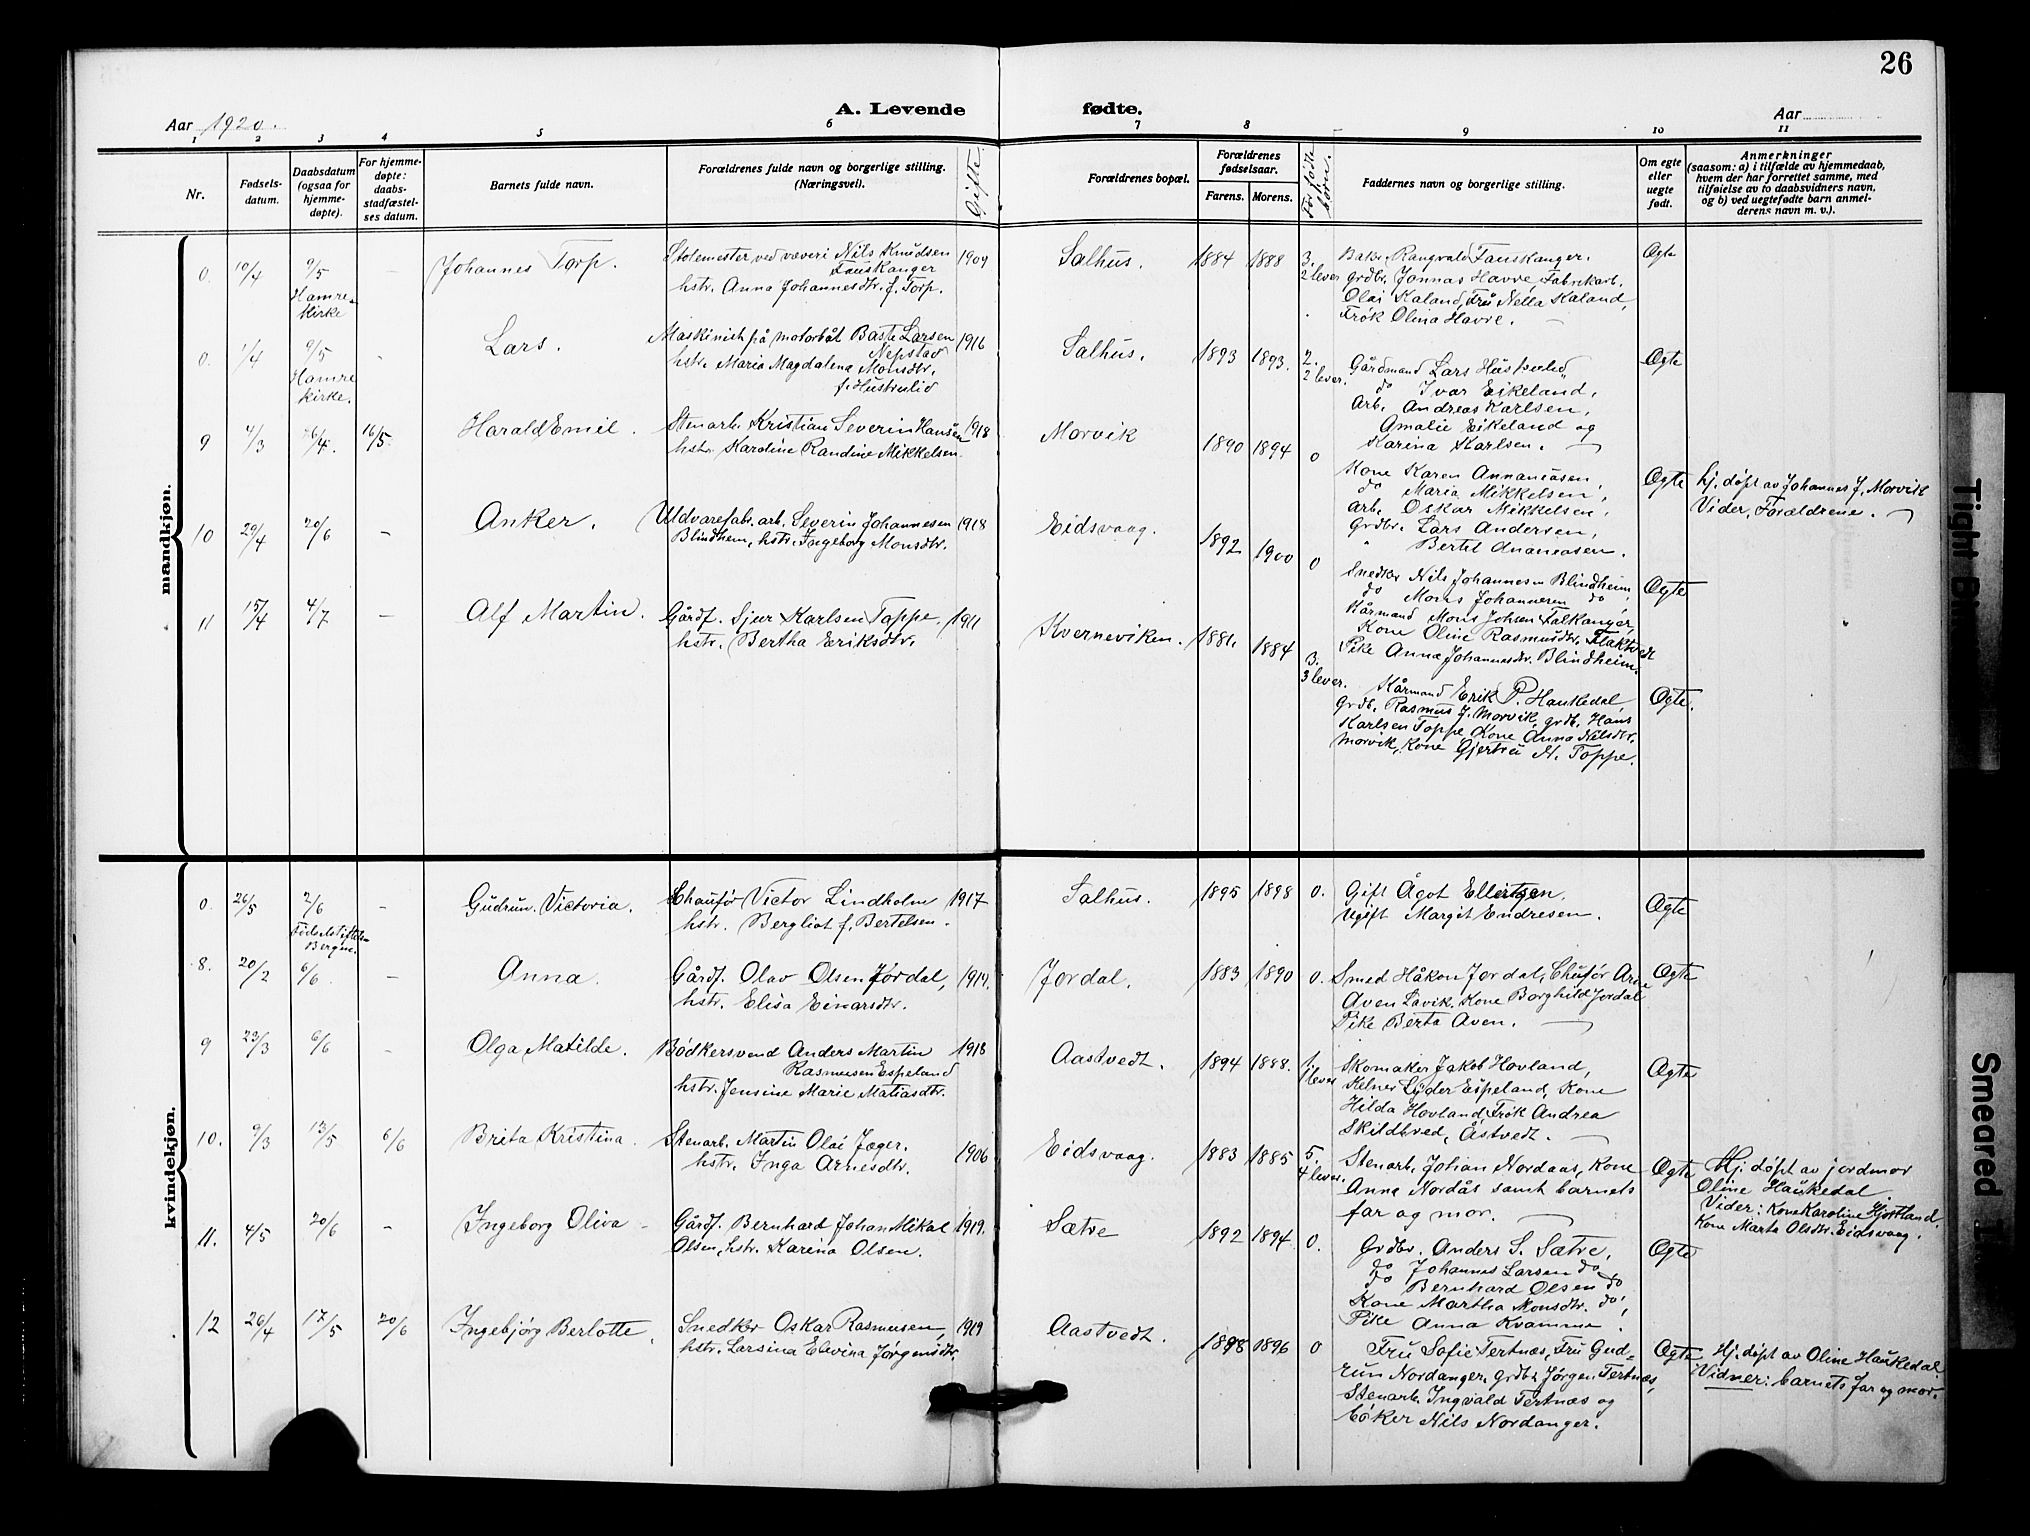 26
A. Levende fødte.
Aar 1920.
Aar
1 2 3 4 5 6 7 8 9 10 11
Nr.
Fødsels-
datum.
Daabsdatum
(ogsaa for
hjemme-
døpte).
For hjemme-
døpte:
daabs-
stadfæstel-
ses datum.
Barnets fulde navn.
Forældrenes fulde navn og borgerlige stilling.
(Næringsvei).
Gifte.
Forældrenes bopæl.
Forældrenes
fødselsaar.
Farens. Morens.
Før fødte
børn.
Faddernes navn og borgerlige stilling.
Om egte
eller
uegte
født.
Anmerkninger
(saasom: a) i tilfælde av hjemmedaab,
hvem der har forrettet samme, med
tilføielse av to daabsvidners navn,
og b) ved uegtefødte barn anmel-
derens navn m. v.).
mandkjøn.
0. 10/4 9/5 —
Hamre
kirke
Johannes Torp.
Stolemester ved væveri Nils Knudsen
Fauskanger
hstr. Anna Johannesdtr. f. Torp.
1909
Salhus.
1884 1888 3.
2 lever
Bake. Rangvald Fauskanger.
Grdbr. Jonnas Havre, Fabrikarb.
Olai Kaland, Frú Nella Kaland,
Frøk Olina Havre. —
Ogte
0. 1/4 9/5 -
Hamre
kirke.
Lars.
Maskinich på motorbåt Baste Larsen
Nepstad
hstr. Maria Magdalena Monsdtr.
f. Hustrulid
1916
Salhus.
1893 1893. 2.
2 lever.
Gårdmand Lars
do Ivar Eikeland,
Arb. Andreas Karlsen,
Amalie Eikeland og
Karina Karlsen. —
Ogte
9 4/3 26/4. 16/5.
Harald Emil.
Stenarb. Kristian Severin Hansen
hstr. Karoline Randine Mikkelsen.
1918
Morvik
1890 1894 0
Kone Karen Annaniasen,
do Maria Mikkelsen,
Arb. Oskar Mikkelsen,
Grdbr. Lars Andersen,
" Bertel Ananiasen.
Ogte
hj. døpt av Johannes J. Morvik
Vider, Forældrene. —
10 29/4 20/6 —
Anker.
Uldvarefabr. arb. Severin Johannesen
Blindhem, hstr. Ingeborg Monsdtr.
1918
Eidsvaag.
1892 1900 0
Snedker Nils Johannesen Blindheim,
do Mons Johannesen do,
Kårmand Mons Johsen Falkanger,
Kone Oline Rasmusdtr. Flaktvedt
Pike Anna Johannesdtr. Blindheim.
Ogte
11 15/4 4/7 —
Alf Martin.
Gårdf. Sjur Karlsen Toppe,
hstr. Bertha Eriksdtr.
1911
Kverneviken.
1881. 1884 3.
3 lever.
Kårmand Erik P. Haukedal,
Grdb. Rasmus J. Morvik, grdb. Hans
Karlsen Toppe, Kone Anna Nilsdtr.
Morvik, Kone Gjertru N. Toppe.
Ogte.
kvindekjøn.
0. 26/5 2/6 -
Fødselstiftelsen
Bergen.
Gudrun Victoria.
Chaufør Victor Lindholm
hstr. Bergliot f. Bertelsen.
1917
Salhus.
1895 1898 0.
Gift Ågot Ellertsen.
Ugift Margit Endresen.
Ogte
8. 20/2 6/6. —
Anna.
Gårdf. Olav Olsen Jordal,
hstr. Elisa Einarsdtr.
1914.
Jordal.
1883 1890 0.
Smed Håkon Jordal, Chufør Arne
Aven Lavik, Kone Borghild Jordal
Pike Berta Aven. —
Ogte
9 23/3 6/6 -
Olga Matilde.
Bødkersvend Anders Martin
Rasmusen Espeland
hstr. Jensine Marie Matiasdtr.
1918
Aastvedt.
1894 1888. 1.
1 lever
Skomaker Jakob Hovland,
Kelner Lyder Espeland, Kone
Hilda Hovland, Frøk Andrea
Skildbred, Åstvedt. —
Ogte
10. 9/3 13/5 6/6
Brita Kristina.
Stenarb. Martin Olai Jæger.
hstr. Inga Arnesdtr.
1906
Eidsvaag.
1883 1885 5.
4 lever.
Stenarb. Johan Nordaas, Kone
Anna Nordås samt barnets
far og mor. —
Ogte
Hj. døpt av jordmor
Oline Haukedal
Vider: Kone Karoline Hjortland.
Kone Marta Olsdtr. Eidsvaag.
11. 4/5 20/6 -
Ingeborg Oliva -
Gårdf. Bernhard Johan Mikal
Olsen, hstr. Karina Olsen.
1919.
Sætre
1892 1894 0.
Grdbr. Anders S. Sætre,
do Johannes Larsen do
do Bernhard Olsen do
Kone Martha Monsdtr. do,
Pike Anna Kvamme.
Ogte
12 26/4 17/5 20/6
Ingebjørg Berlotte.
Snedker Oskar Rasmusen,
hstr. Larsina Elevina Jørgensdtr.
1919
Aastvedt.
1898 1896 0
Frú Sofie Tertnæs, Frú Gud=
run Nordanger. Grdbr Jørgen Tertnæs,
Stenarb. Ingvald Tertnæs og
bøker Nils Nordanger.
Ogte
Hj. døpt av Oline Haukedal
Vidner: barnets far og mor.
Tight Bi
Smeared